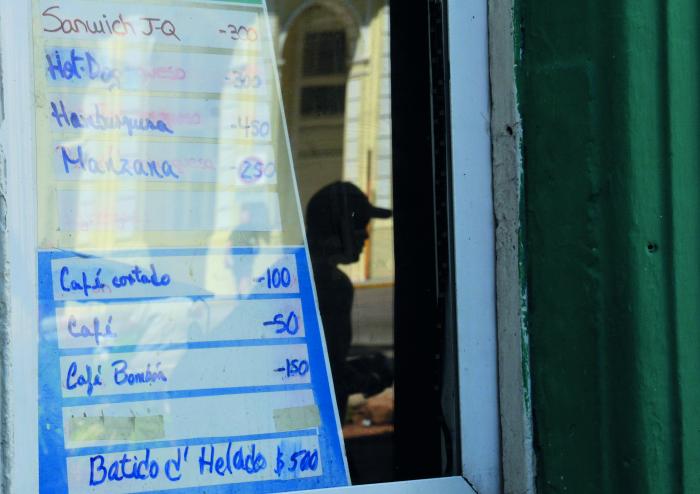 Sanwich J-Q -300
Hot-Dog -300
Hamburguesa -450
Manzana 250
Café cortado -100
Café -50
Café Bombón -150
Batido d' Helado $500